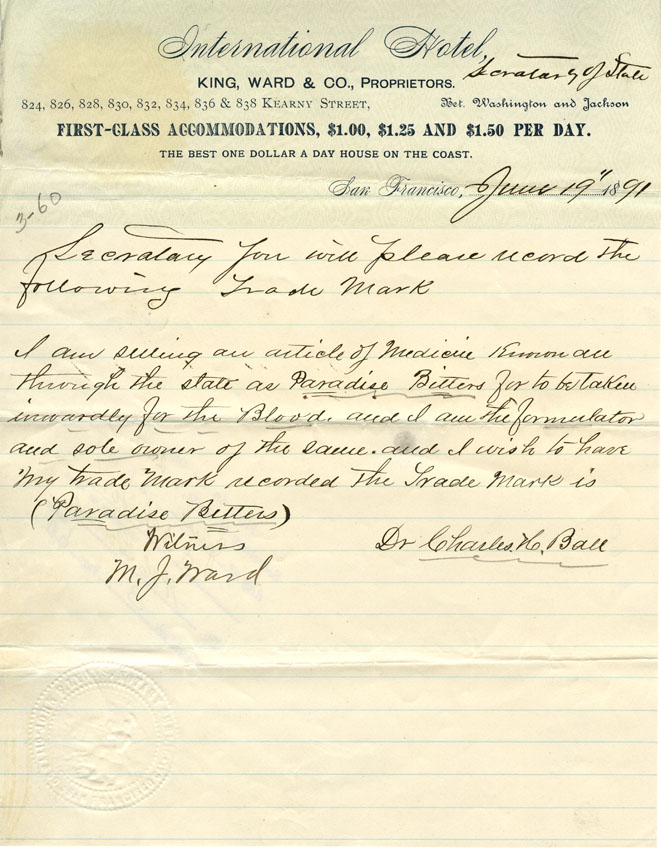 International Hotel,
Secratary of State
KING, WARD & CO., PROPRIETORS.
824, 826, 828, 830, 832, 834, 836 & 838 KEARNY STREET, Bet. Washington and Jackson
FIRST-CLASS ACCOMMODATIONS, $1.00, $1.25 AND $1.50 PER DAY.
THE BEST ONE DOLLAR A DAY HOUSE ON THE COAST.
San Francisco, June 19" 1891
3-60
Secratary You will please record the
following Trade Mark
I am selling an article of Medicine Known all
through the state as Paradise Bitters for to be taken
inwardly for the Blood. and I am the formulator
and sole owner of the same. and I wish to have
my trade Mark recorded the Trade Mark is
(Paradise Bitters)
Witness Dr Charles. H. Ball
M. J. Ward